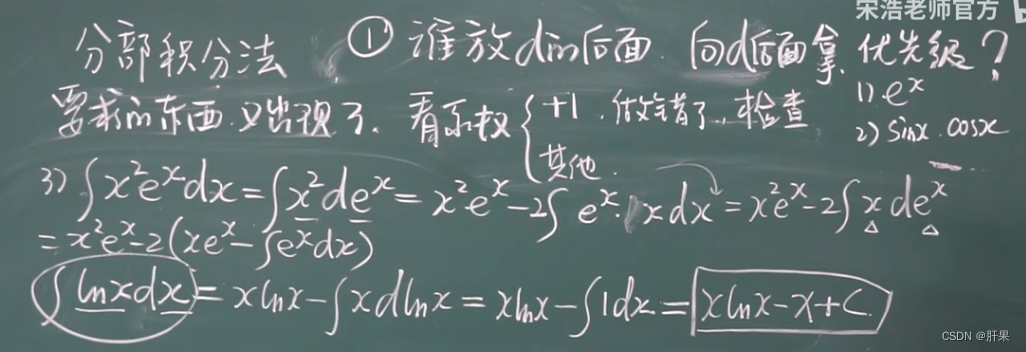 宋浩老师官方
分部积分法 ① 谁放d的后面. 向d后面拿. 优先级?
要求的东西又出现了. 看系数 { +1. 做错了, 检查
其他.
1) e^x
2) sinx. cosx
3) ∫x²e^xdx = ∫x²de^x = x²e^x-2∫e^x·xdx = x²e^x-2∫xde^x
= x²e^x-2(xe^x-∫e^xdx)
∫lnxdx = xlnx-∫xdlnx = xlnx-∫1dx = xlnx-x+C.
CSDN @肝果